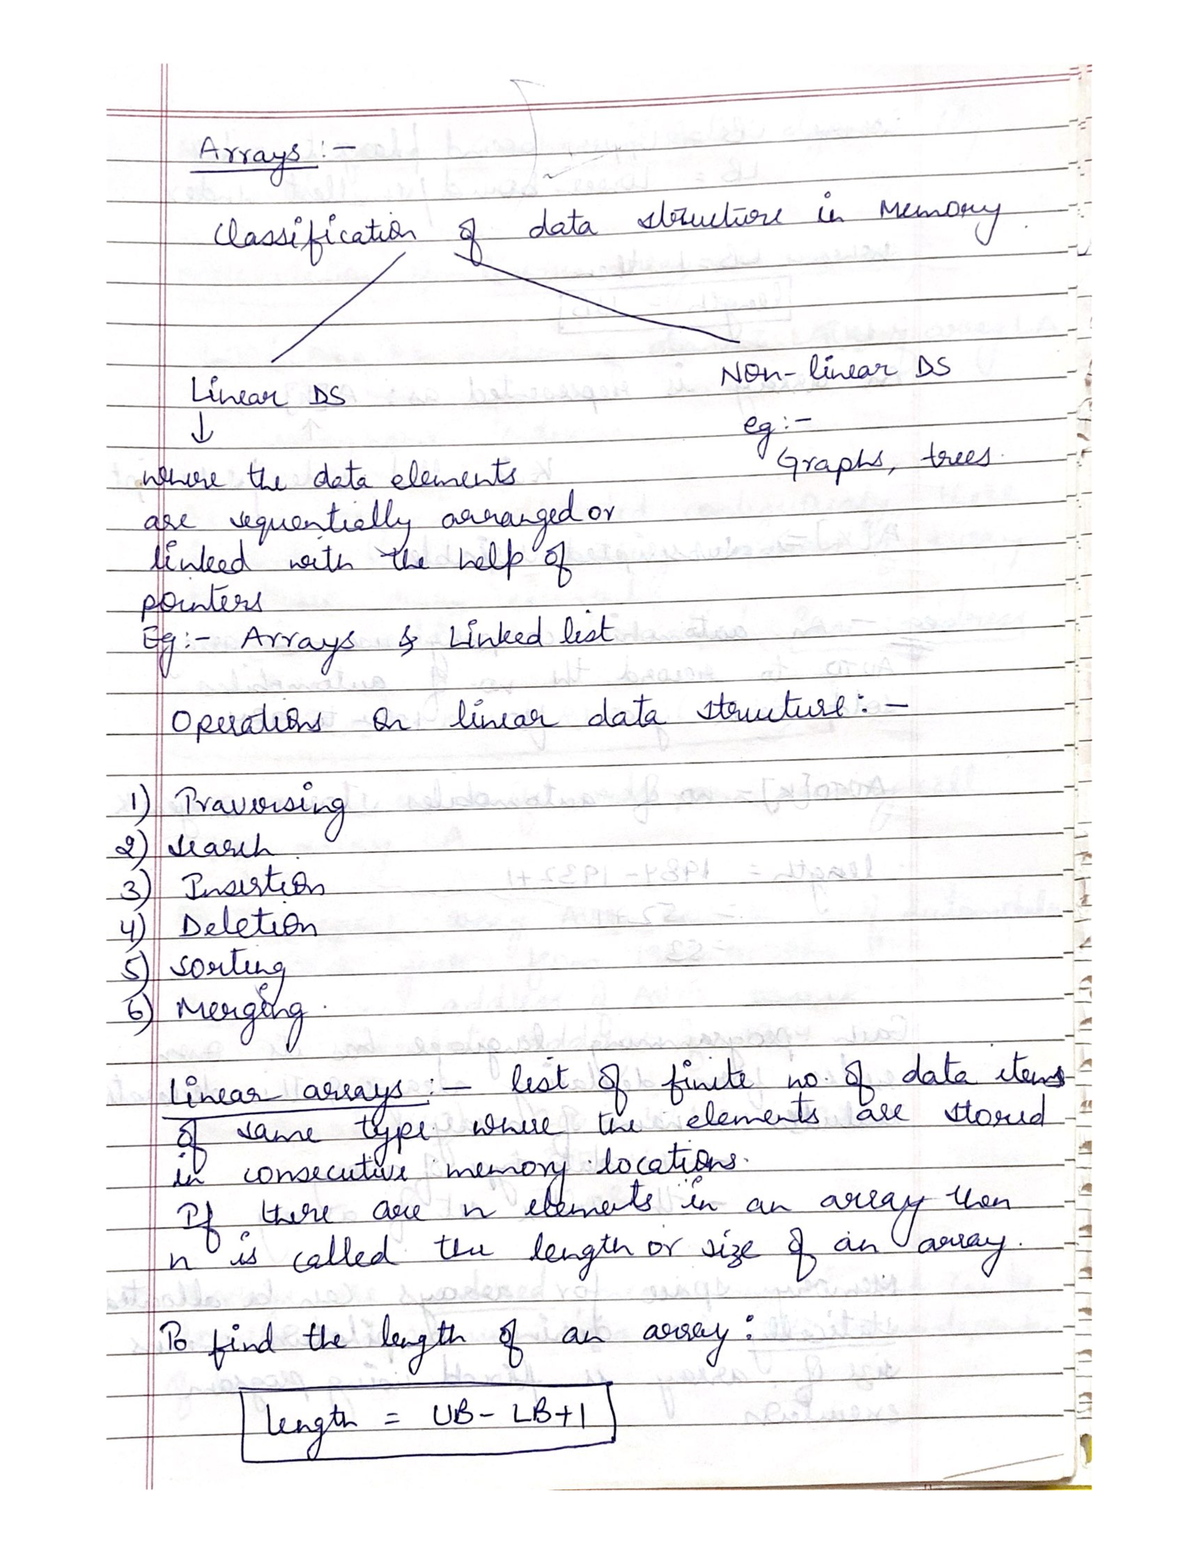 Arrays :-
Classification of data structure in Memory.
Linear DS
Non-linear DS
↓
eg :-
Graphs, trees.
where the data elements
are sequentially arranged or
linked with the help of
pointers
Eg :- Arrays & Linked list
Operations on linear data structure :-
1) Traversing
2) search
3) Insertion
4) Deletion
5) sorting
6) Merging.
Linear arrays :- list of finite no. of data items
of same type where the elements are stored
in consecutive memory locations.
If there are n elements in an array then
n is called the length or size of an array.
To find the length of an array :
length = UB - LB + 1